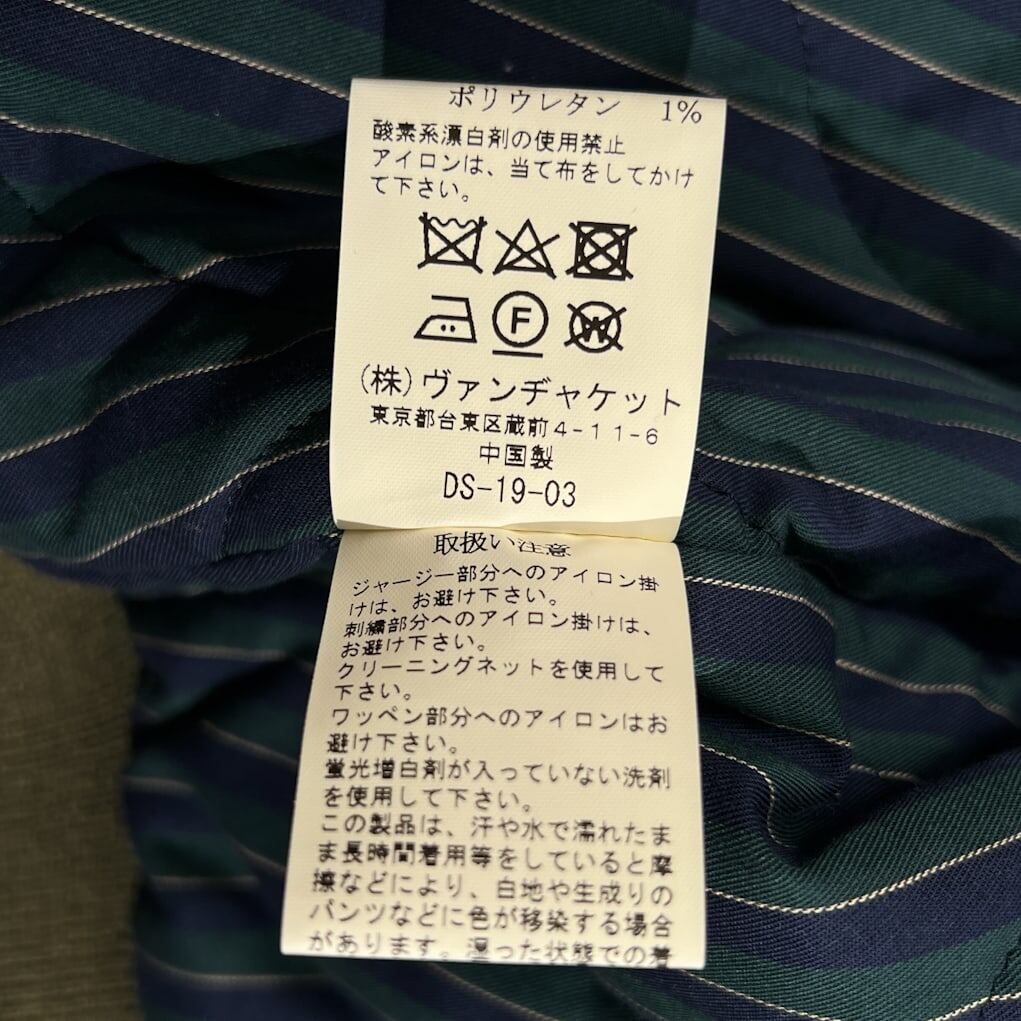 ポリウレタン 1%
酸素系漂白剤の使用禁止
アイロンは、当て布をしてかけ
て下さい。
F
W
(株)ヴァンヂャケット
東京都台東区蔵前4-11-6
中国製
DS-19-03
取扱い注意
ジャージー部分へのアイロン掛
けは、お避け下さい。
刺繍部分へのアイロン掛けは、
お避け下さい。
クリーニングネットを使用して
下さい。
ワッペン部分へのアイロンはお
避け下さい。
蛍光増白剤が入っていない洗剤
を使用して下さい。
この製品は、汗や水で濡れたま
ま長時間着用等をしていると摩
擦などにより、白地や生成りの
パンツなどに色が移染する場合
があります。湿った状態での着